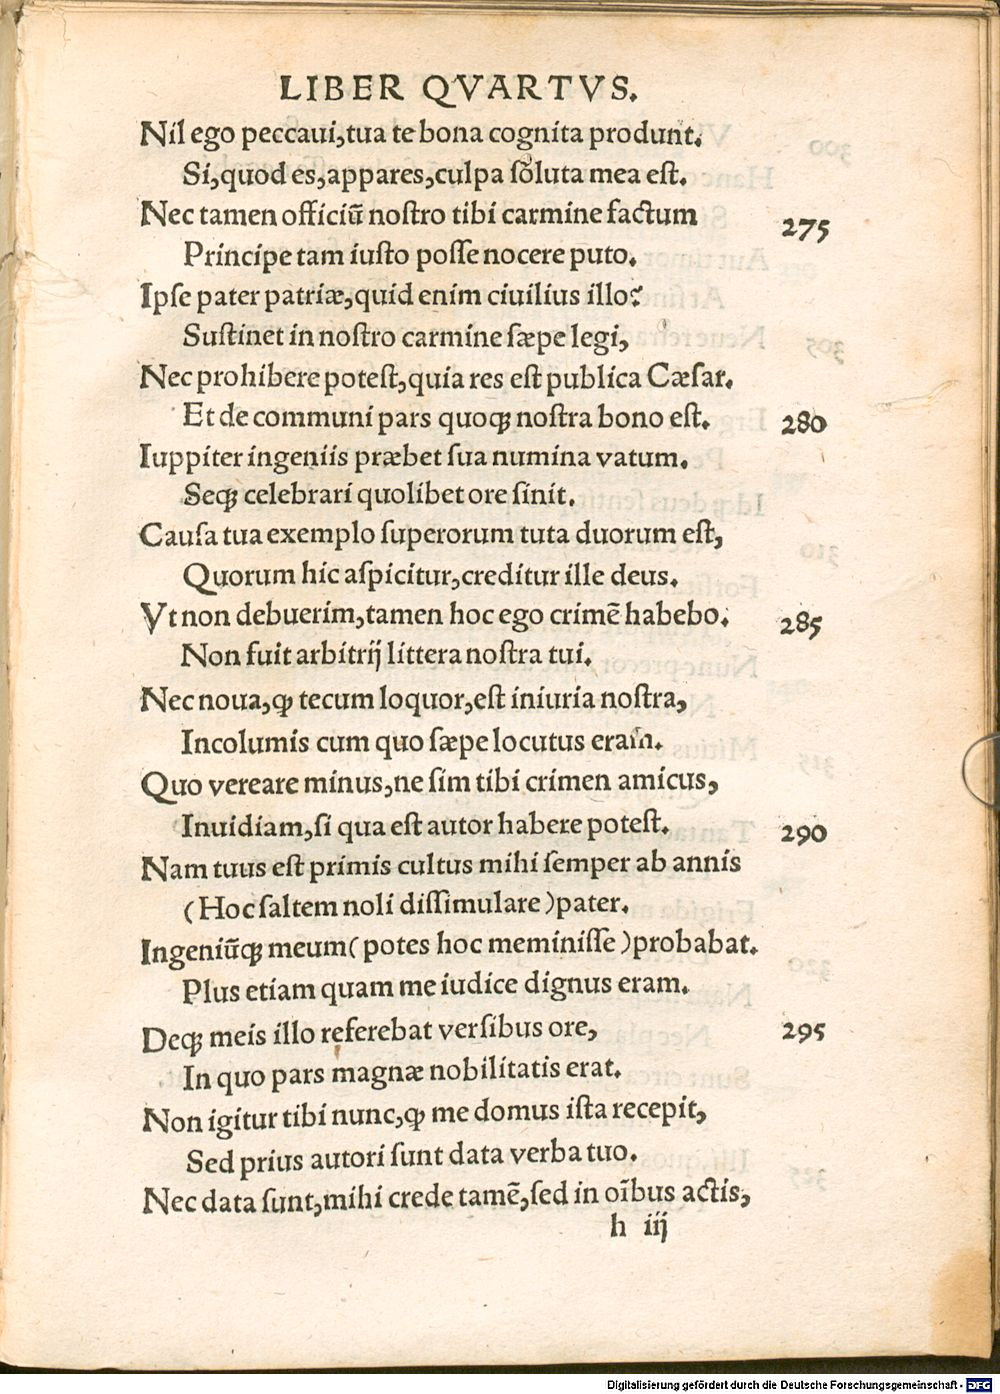 LIBER QVARTVS.
Nil ego peccaui,tua te bona cognita produnt.
Si,quod es,appares,culpa soluta mea est.
Nec tamen officiū nostro tibi carmine factum 275
Principe tam iusto posse nocere puto.
Ipse pater patriæ,quid enim ciuilius illo?
Sustinet in nostro carmine sæpe legi,
Nec prohibere potest,quia res est publica Cæsar.
Et de communi pars quoqꝫ nostra bono est. 280
Iuppiter ingeniis præbet sua numina vatum.
Seqꝫ celebrari quolibet ore sinit.
Causa tua exemplo superorum tuta duorum est,
Quorum hic aspicitur,creditur ille deus.
Vt non debuerim,tamen hoc ego crimē habebo. 285
Non fuit arbitrij littera nostra tui.
Nec noua,ꝙ tecum loquor,est iniuria nostra,
Incolumis cum quo sæpe locutus eram.
Quo vereare minus,ne sim tibi crimen amicus,
Inuidiam,si qua est autor habere potest. 290
Nam tuus est primis cultus mihi semper ab annis
(Hoc saltem noli dissimulare)pater.
Ingeniūqꝫ meum(potes hoc meminisse)probabat.
Plus etiam quam me iudice dignus eram.
Deqꝫ meis illo referebat versibus ore, 295
In quo pars magnæ nobilitatis erat.
Non igitur tibi nunc,ꝙ me domus ista recepit,
Sed prius autori sunt data verba tuo.
Nec data sunt,mihi crede tamē,sed in oībus actis,
h iij
Digitalisierung gefördert durch die Deutsche Forschungsgemeinschaft - DFG